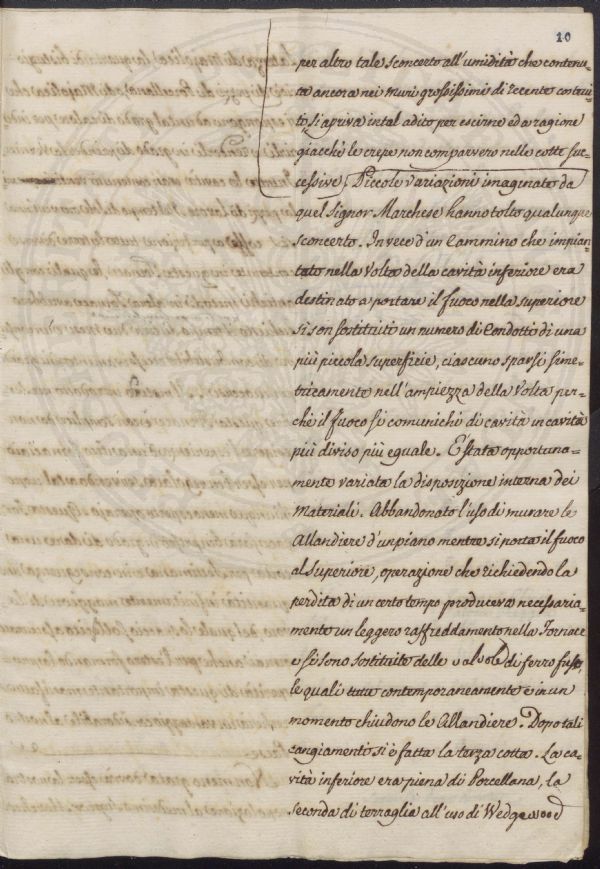 10
per altro tale sconcerto all'umidità che contenu=
ta ancora nei muri grossissimi di recente costrui=
to si apriva in tal adito per escirne ed a ragione
giacchè le crepe non comparvero nelle cotte suc=
cessive. Piccole variazioni imaginate da
quel Signor Marchese hanno tolto qualunque
sconcerto. In vece d'un Cammino che impian=
tato nella Volta della cavità inferiore era
destinato a portare il fuoco nella superiore
si son sostituiti un numero di Condotti di una
più piccola superficie, ciascuno sparsi sime=
tricamente nell'ampiezza della Volta per=
chè il fuoco si comunichi di cavità in cavità
più diviso più eguale. È stata opportuna=
mente variata la disposizione interna dei
Materiali. Abbandonato l'uso di murare le
Allandiere d'un piano mentre si porta il fuoco
al superiore, operazione che richiedendo la
perdita di un certo tempo produceva necessaria=
mente un leggero raffreddamento nella Fornace
e si sono sostituite delle valvole di ferro fuso,
le quali tutte contemporaneamente e in un
momento chiudono le Allandiere. Dopo tali
cangiamenti si è fatta la terza cotta. La ca=
vità inferiore era piena di Porcellana, la
seconda di terraglia all'uso di Wedgewood